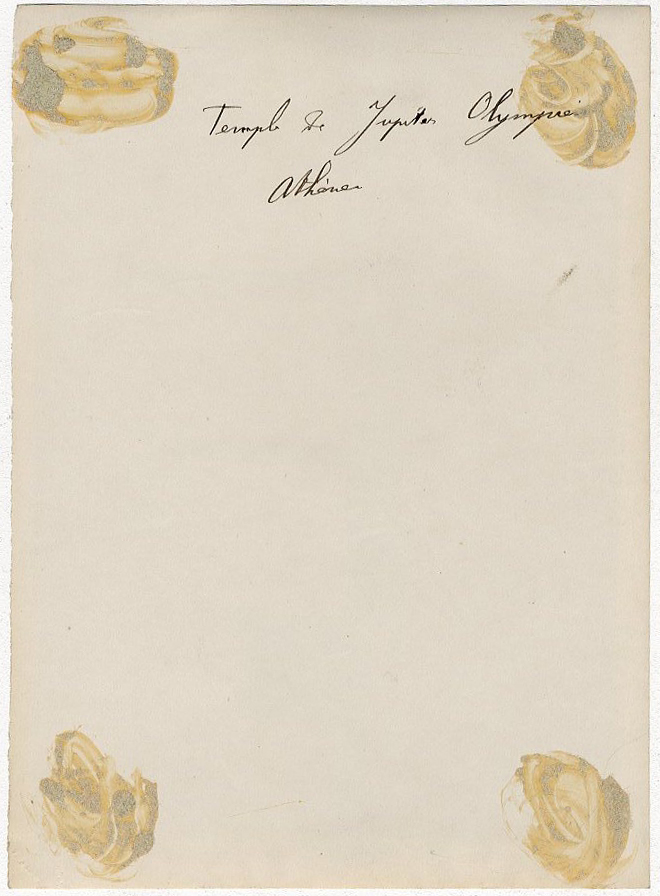 Temple de Jupiter Olympien
Athènes